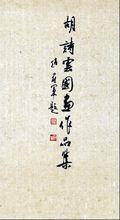 胡詩雲國畫作品集